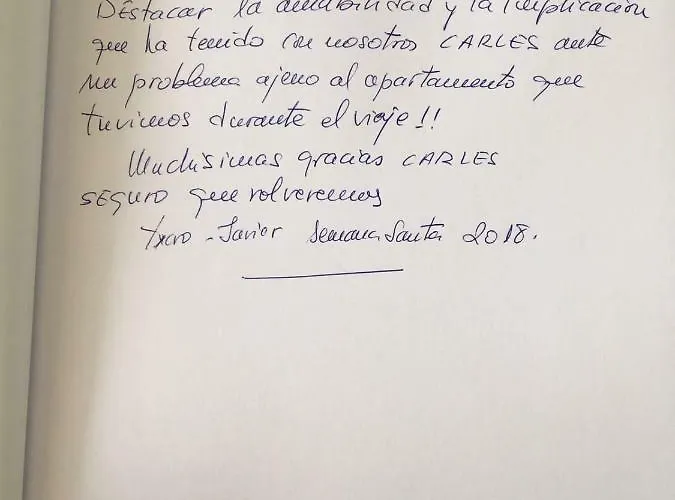 DEstacar la amabilidad y la implicación
que ha tenido con nosotros CARLES ante
un problema ajeno al apartamento que
tuvimos durante el viaje!!
Muchisimas gracias CARLES
SEGURO que volveremos
- Javier Semana Santa 2018.